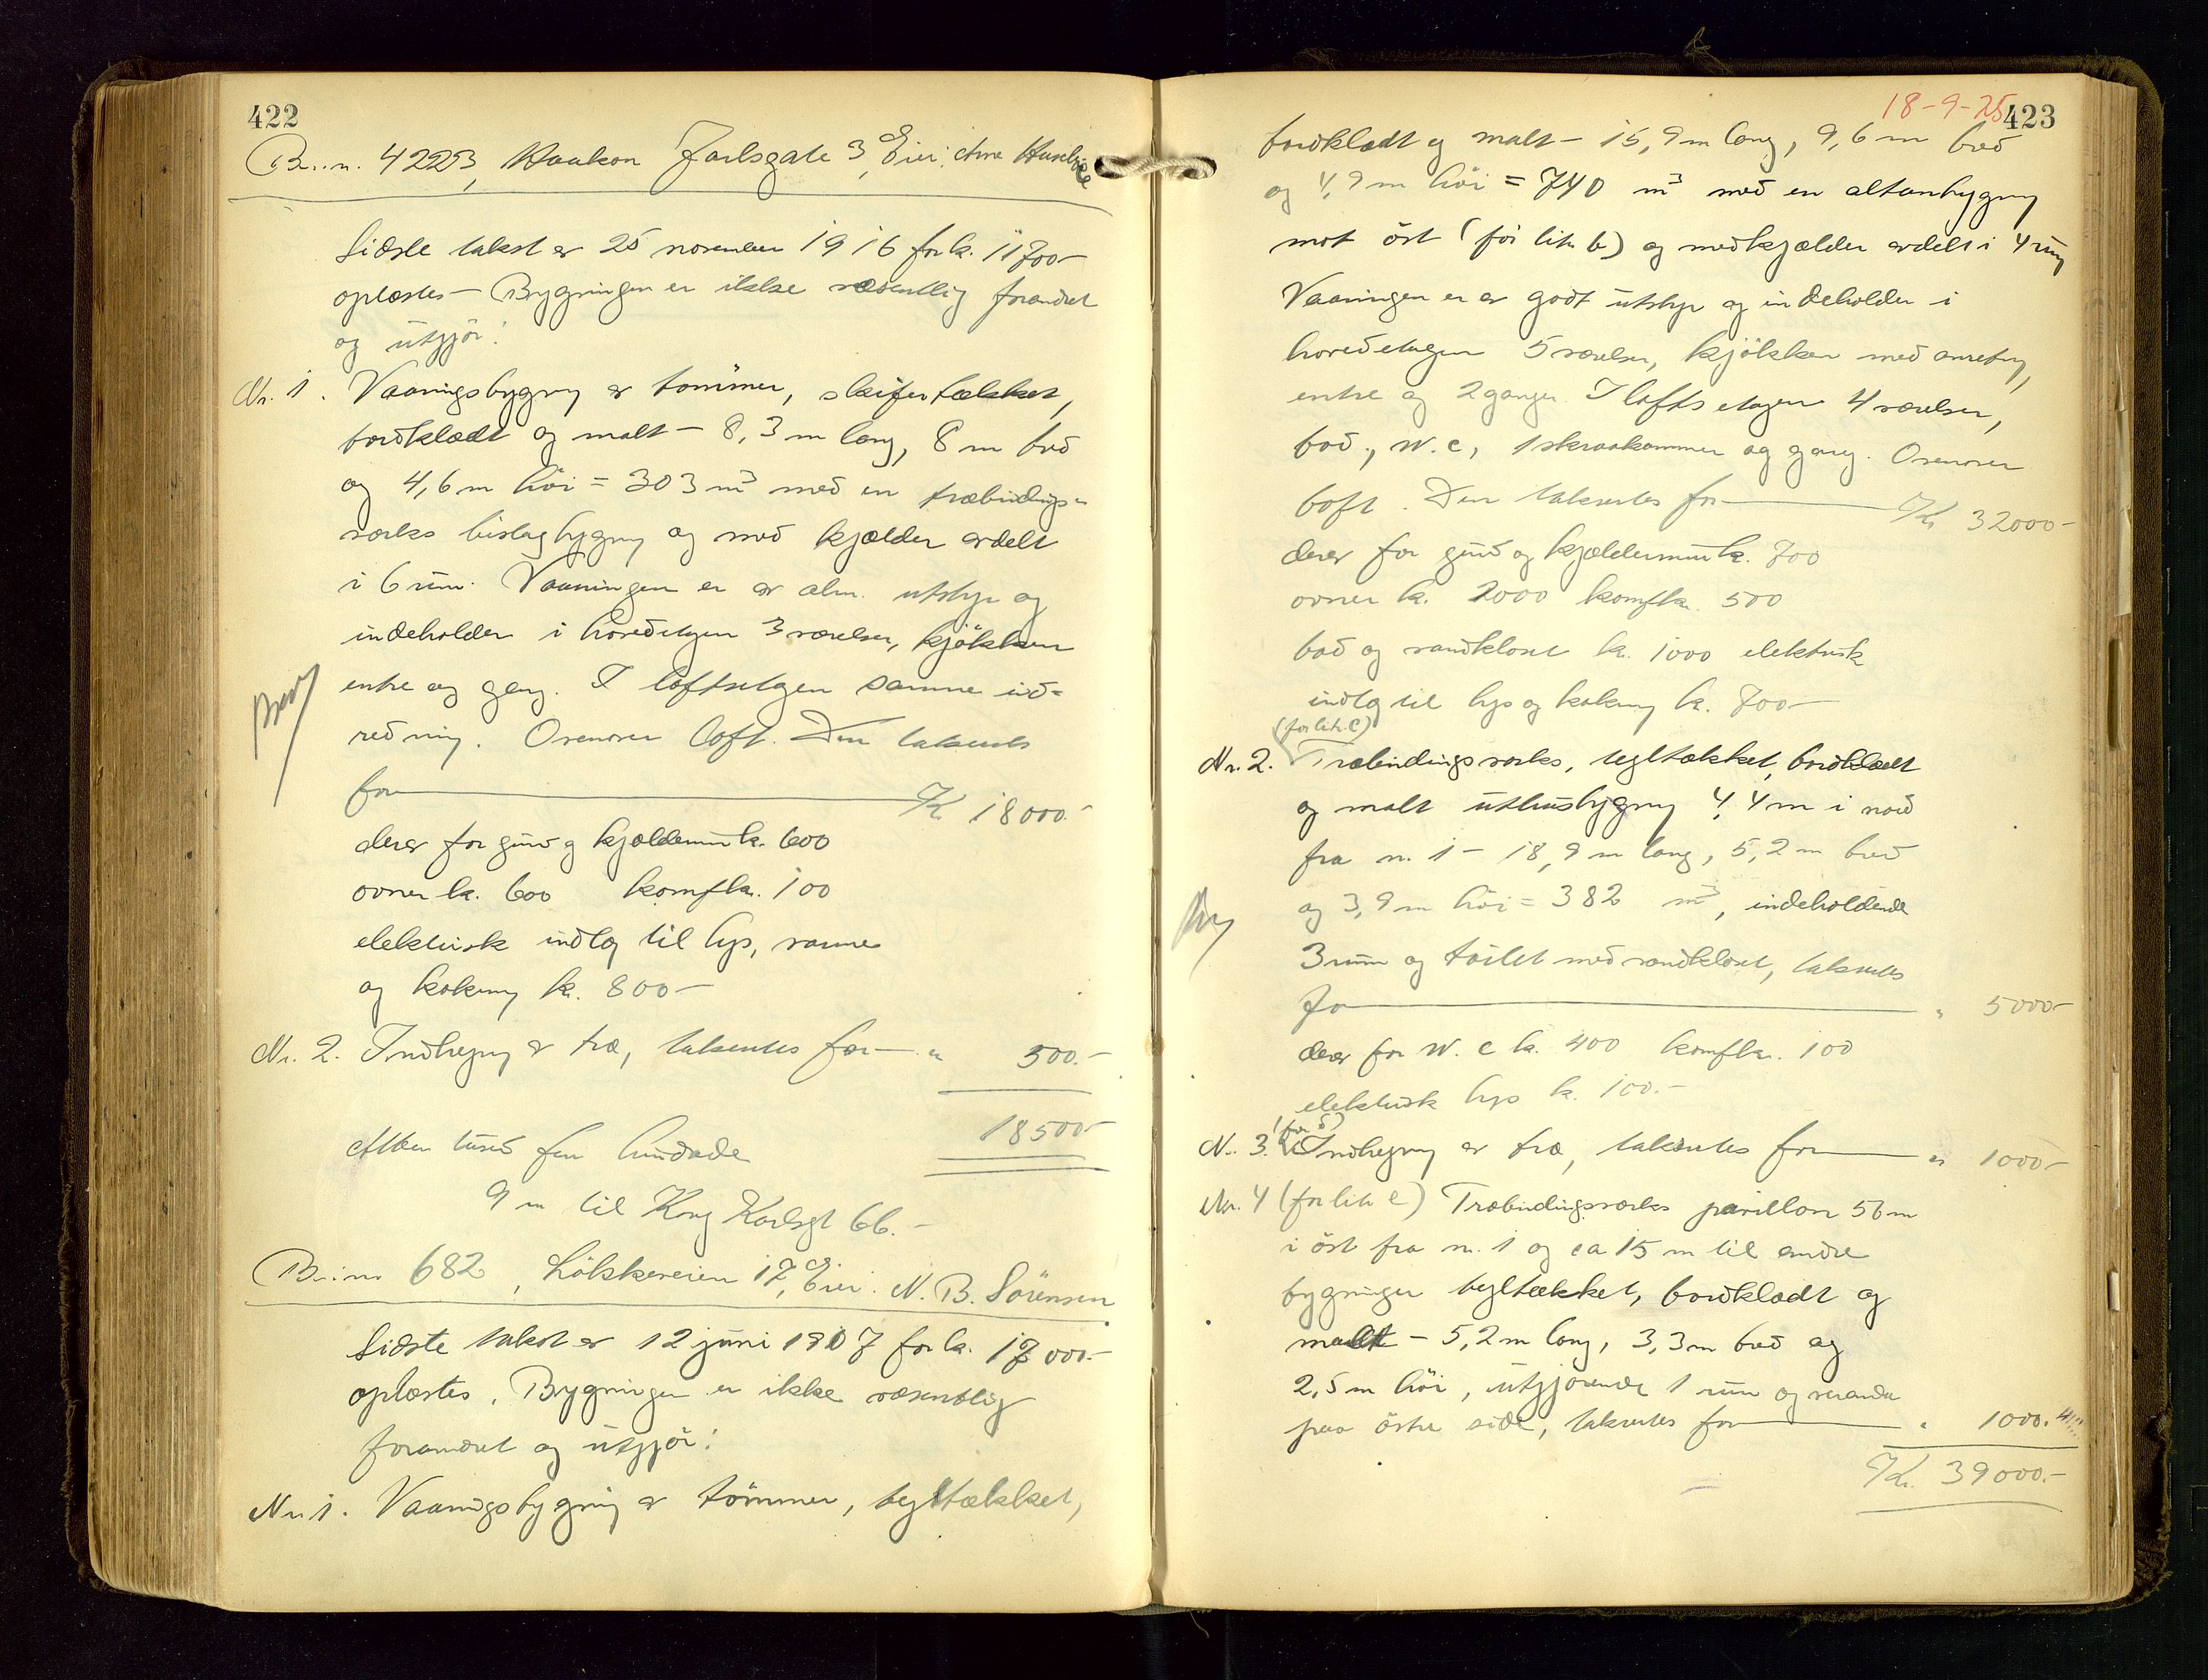 422
Br.n. 4223, Haakon Jarlsgate 3, Eier: Arne Husebye
Sidste takst er 25 november 1916 for kr. 11700-
oplæstes - Bygningen er ikke væsentlig forandret
og utgjör:
Nr. 1. Vaaningsbygng av tømmer, skifertækket,
bordklædt og malt - 8,3 m lang, 8 m bred
og 4,6 m höi = 303 m³ med en træbindings-
værks bislagbygng og med kjælder avdelt
i 6 rum. Vaaningen er av alm. utstyr og
indeholder i hovedetagen 3 værelser, kjökken
entre og gang. I loftsetagen samme ind-
redning. Ovenover loft. Den takseres
for Kr. 18000.-
derav for grund og kjældermur kr. 600
ovner kr. 600 komf kr. 100
elektrisk indlæg til lys, varme
og kokning kr. 800-
Nr. 2. Indhegng av træ, takseres for " 500.-
18500-
Atten tusend fem hundrede
9 m til Kong Karlsgt 66.-
Br.no 682, Lökkeveien 17, Eier: N. B. Sörensen
Sidste takst er 12 juni 1907 for kr. 17000.-
oplæstes. Bygningen er ikke væsentlig
forandret og utgjör:
Nr. 1. Vaaningsbygning av tömmer, tegltækket,
18-9-25
423
bordklædt og malt - 15,9 m lang, 9,6 m bred
og 4,9 m höi = 740 m³ med en altanbygng
mot öst (för litr b) og med kjælder avdelt i 4 rum
Vaaningen er av godt utstyr og indeholder i
hovedetagen 5 værelser, kjökken med anretng,
entre og 2 ganger. I loftsetagen 4 værelser,
bad, w.c, 1 skraakammer og gang. Ovenover
loft. Den takseres for Kr. 32000-
derav for grund og kjældermur kr. 700
ovner kr. 2000 komf kr. 500
bad og vandkloset kr. 1000 elektrisk
indlæg til lys og kokning kr. 700-
(för litr. c)
Nr. 2. Træbindingsværks, tegltækket, bordklædt
og malt uthusbygng 4,4 m i nord
fra nr. 1 - 18,9 m lang, 5,2 m bred
og 3,9 m höi = 382 m³, indeholdende
3 rum og toilet med vandkloset, takseres
for " 5000-
derav for w. c kr. 400 komf kr. 100
elektrisk lys kr. 100.-
(för d)
Nr. 3. Indhegng av træ, takseres for " 1000-
Nr. 4 (för litr e) Træbindingsværks pavillon 56 m
i öst fra nr. 1 og ca 15 m til andre
bygninger tegltækket, bordklædt og
malt - 5,2 m lang, 3,3 m bred og
2,5 m höi, utgjörende 1 rum og veranda
paa östre side, takseres for " 1000.
Kr. 39000.-